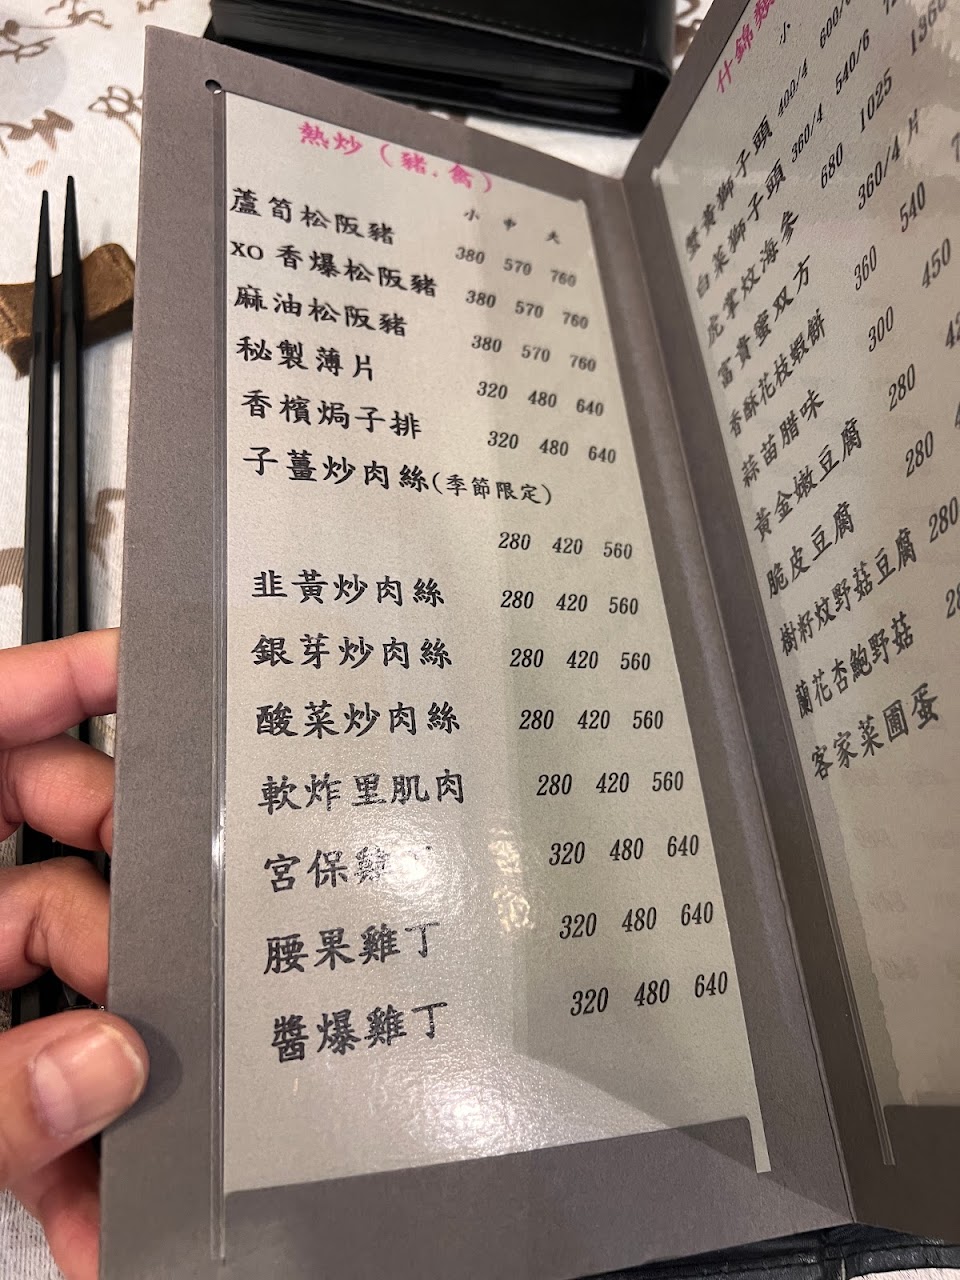 熱炒（豬.禽）
小 中 大
蘆筍松阪豬 380 570 760
XO香爆松阪豬 380 570 760
麻油松阪豬 380 570 760
秘製薄片 320 480 640
香檳焗子排 320 480 640
子薑炒肉絲(季節限定)
280 420 560
韭黃炒肉絲 280 420 560
銀芽炒肉絲 280 420 560
酸菜炒肉絲 280 420 560
軟炸里肌肉 280 420 560
宮保雞 320 480 640
腰果雞丁 320 480 640
醬爆雞丁 320 480 640
什錦類
小
蟹黃獅子頭 400/4 600/6
白菜獅子頭 360/4 540/6
虎掌炆海參 680 1025 1360
富貴蜜双方 360/4片
香酥花枝蝦餅 360 540
蒜苗腊味 300 450
黃金嫩豆腐 280
脆皮豆腐 280
樹籽炆野菇豆腐 280
蘭花杏鮑野菇
客家菜圃蛋